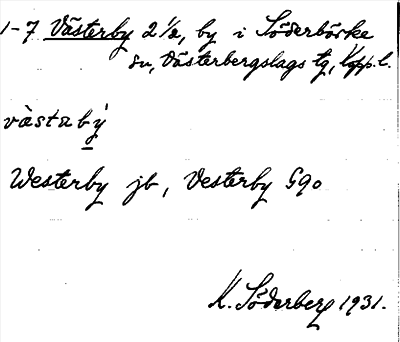 1-7 Västerby 2 1/2, by i Söderbärke
sn, Västerbergslags tg, Kopp. l.
västabý
Westerby jb, Vesterby G90
K. Söderberg 1931.